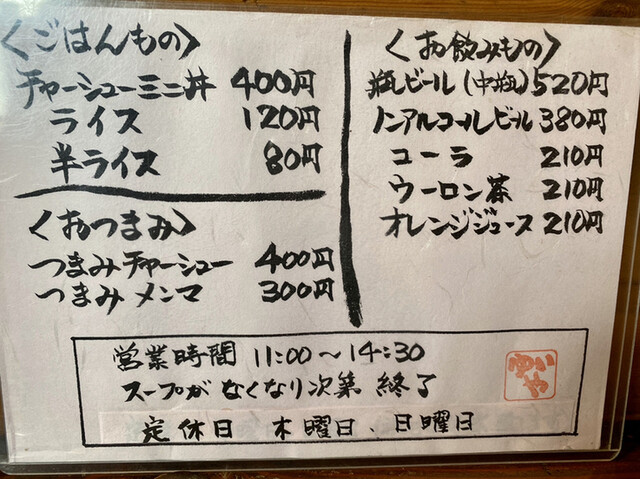 〈ごはんもの〉
チャーシューミニ丼 400円
ライス 120円
半ライス 80円
〈おつまみ〉
つまみチャーシュー 400円
つまみメンマ 300円
〈お飲みもの〉
瓶ビール(中瓶) 520円
ノンアルコールビール 380円
コーラ 210円
ウーロン茶 210円
オレンジジュース 210円
営業時間 11:00〜14:30
スープがなくなり次第 終了
定休日 木曜日、日曜日